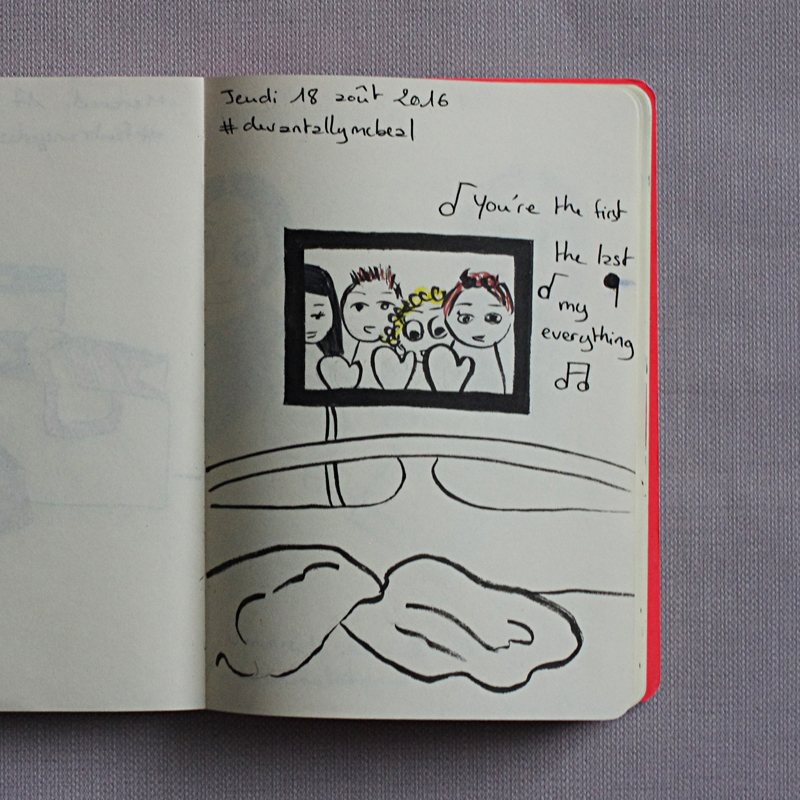 Jeudi 18 août 2016
#devantallymcbeal
You're the first
the last
my
everything